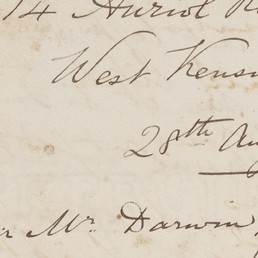 14 Auriol R
West Kens
28th Au
r Mr. Darwin,